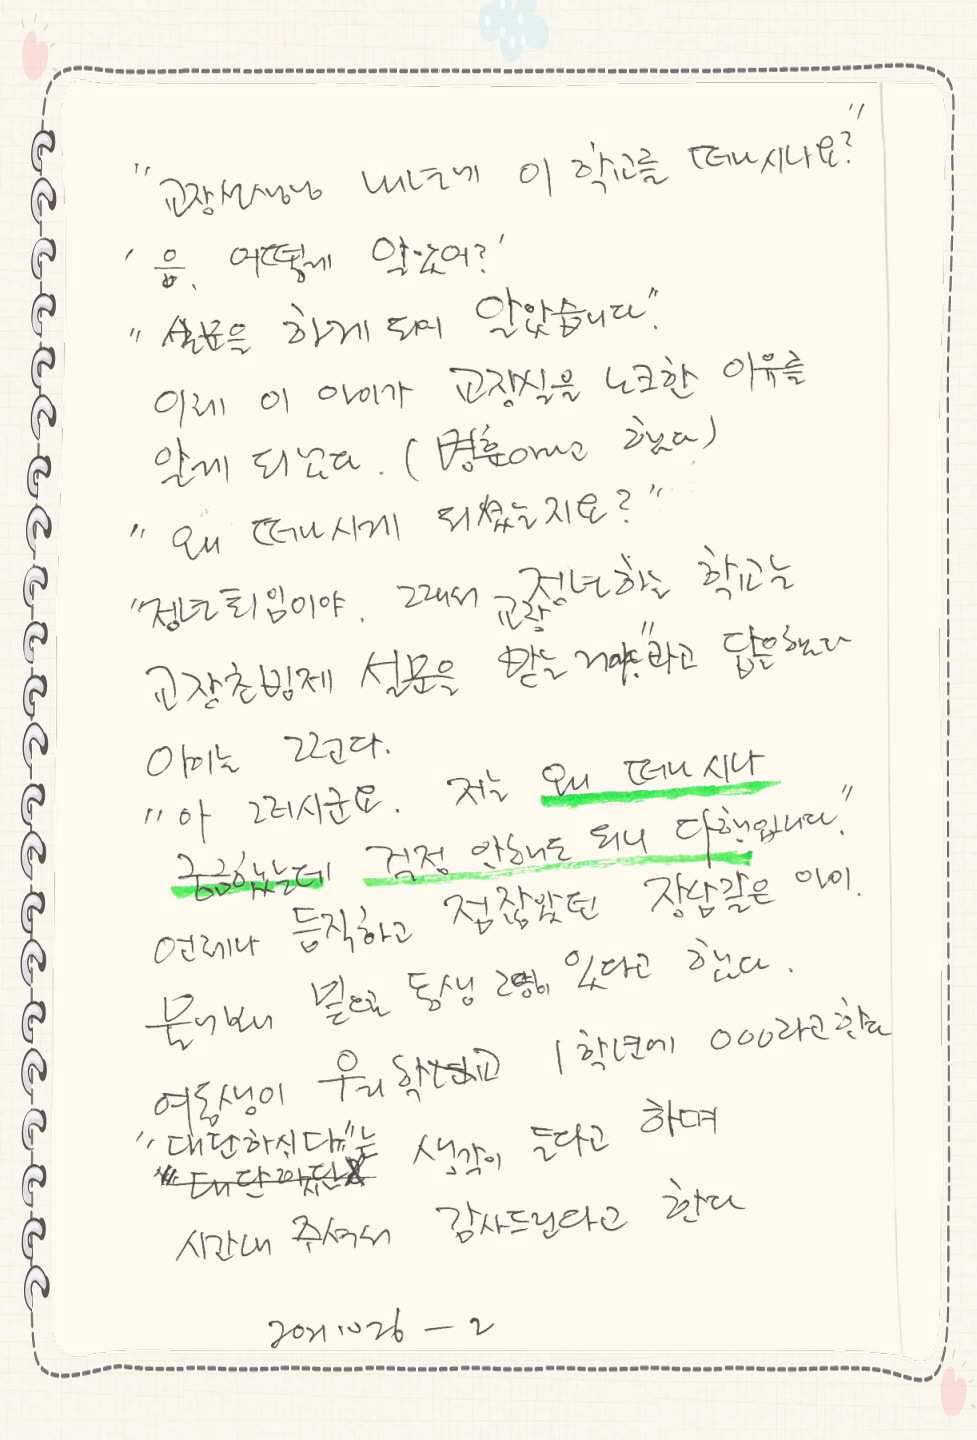 "교장선생님 내년에 이 학교를 떠나시나요?"
'응. 어떻게 알았어?'
"설문을 하게 되어 알았습니다".
이제 이 아이가 교장실을 노크한 이유를
알게 되었다. ( 했다)
"왜 떠나시게 되셨는지요?"
"정년퇴임이야. 그래서 교장 정년하는 학교는
교장초빙제 설문을 받는 거야."라고 답을 했다
아이는 그랬다.
"아 그러시군요. 저는 왜 떠나시나
궁금했는데 걱정 안해도 되니 다행입니다."
언제나 듬직하고 점잖았던 장남같은 아이.
물어보니 동생 2명이 있다고 했다.
여동생이 우리학교 1학년에 000라고 한다
"대단하시다"는 생각이 든다고 하며
시간내 주셔서 감사드린다고 한다
20211026 - 2